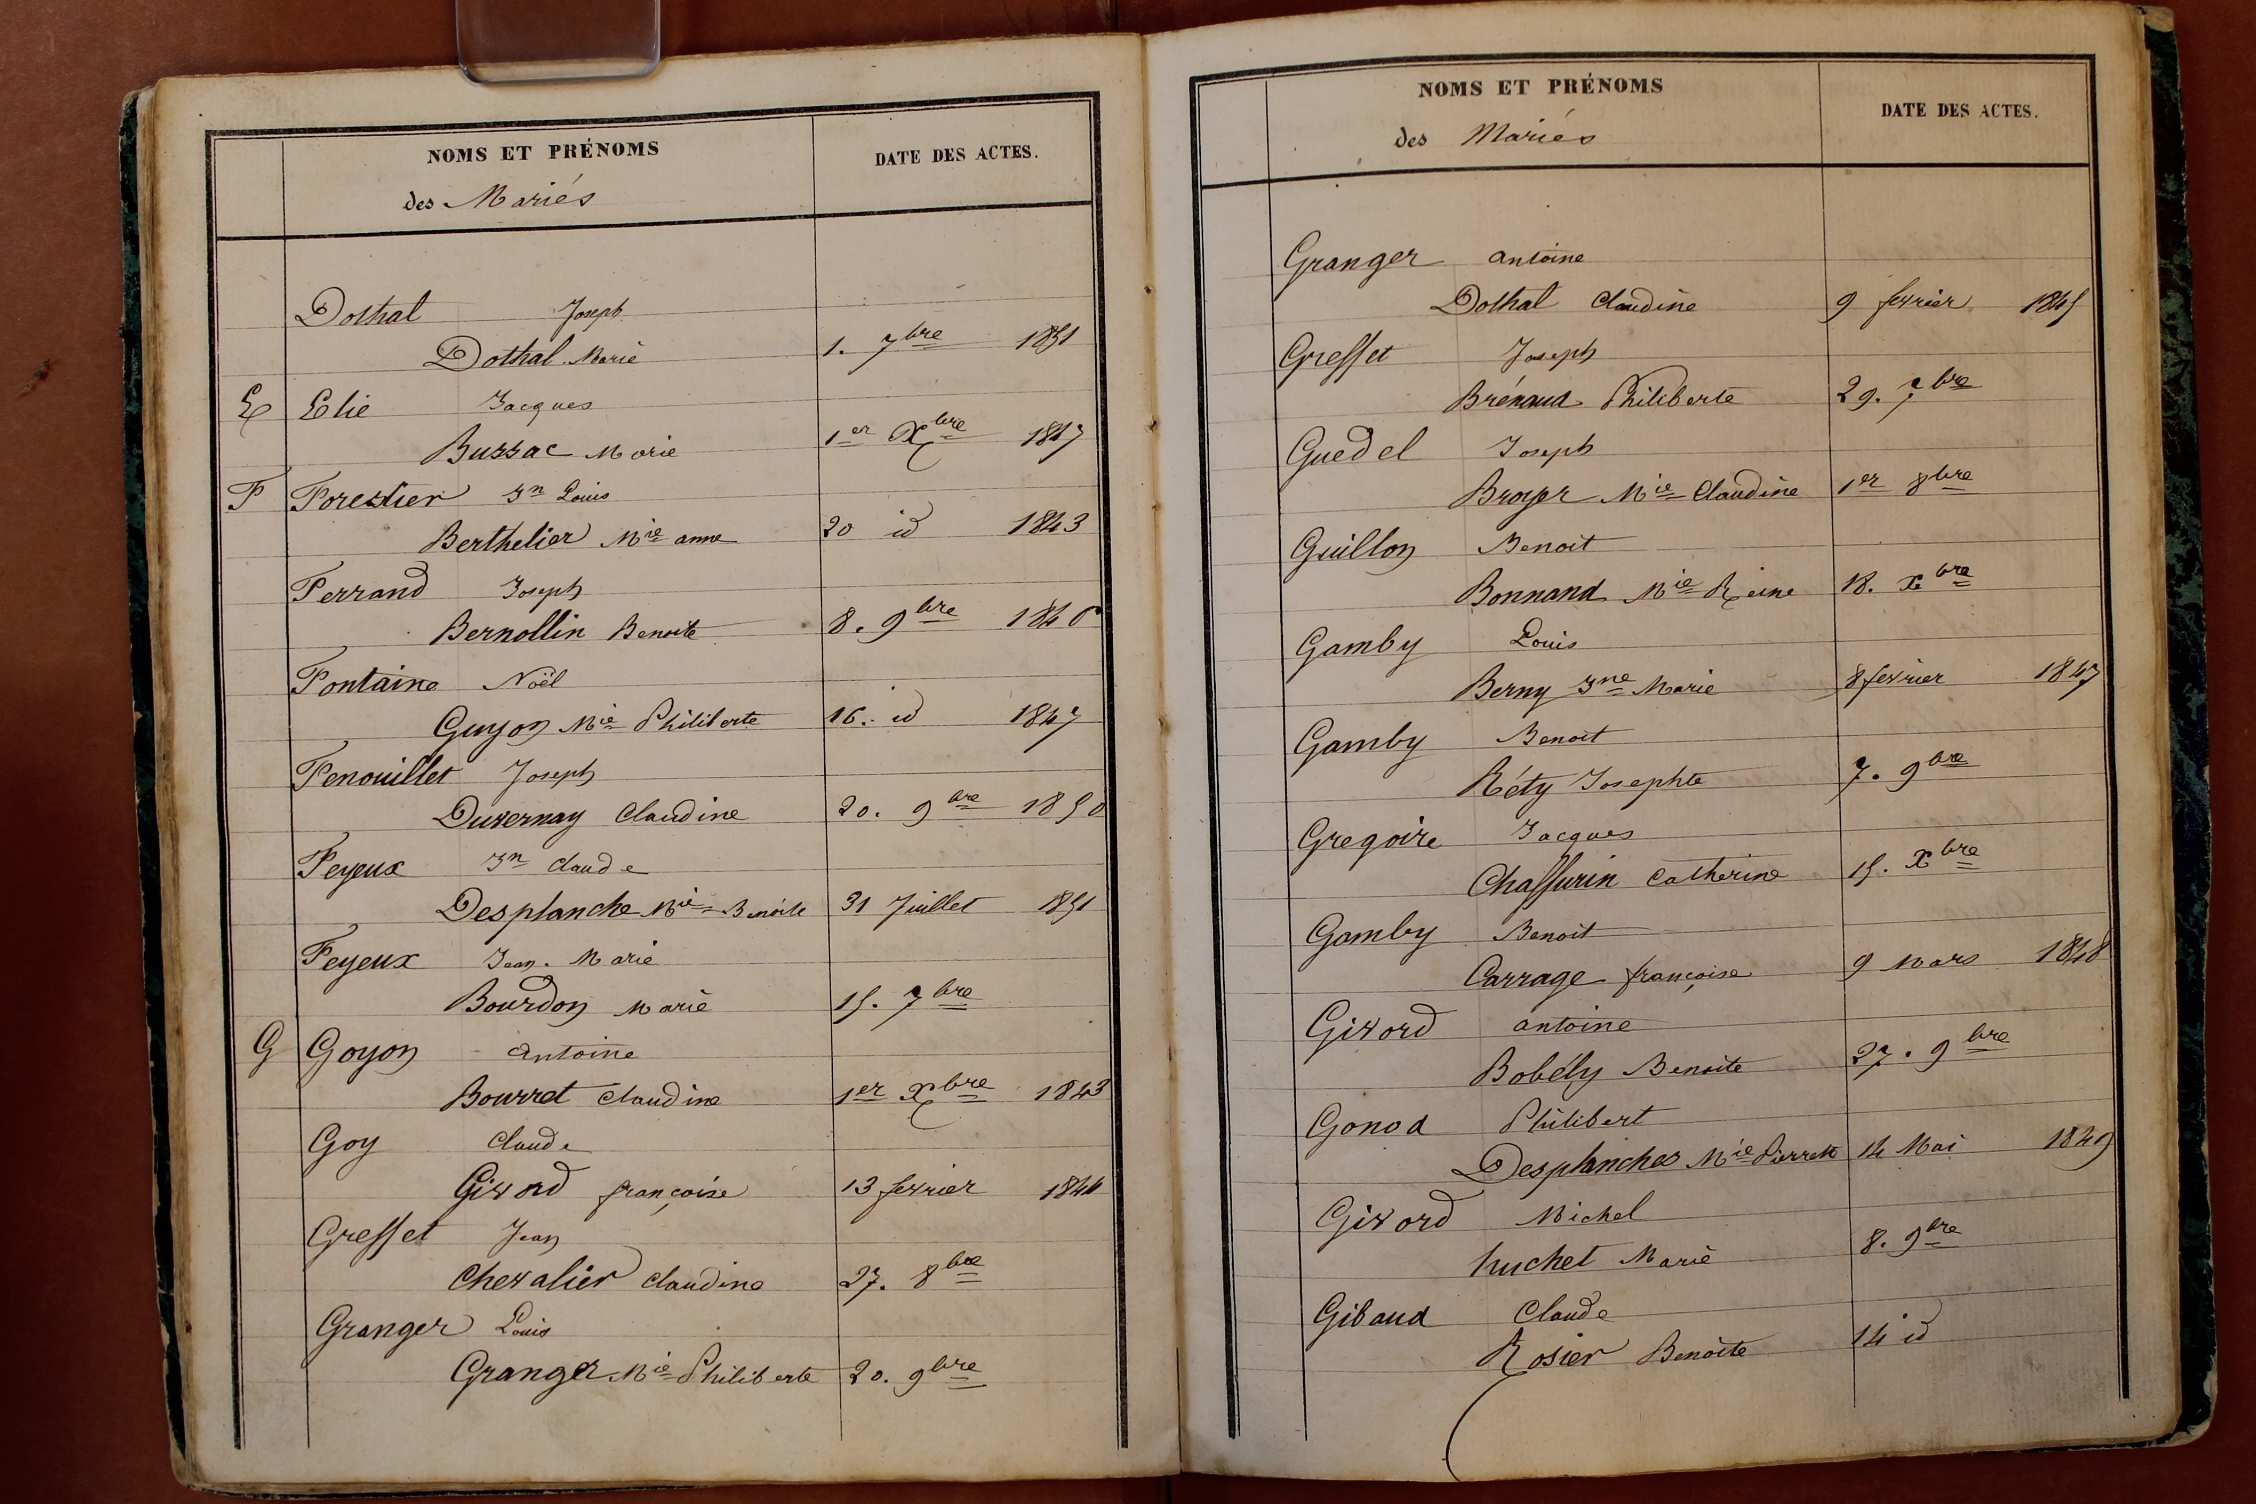 NOMS ET PRÉNOMS
DATE DES ACTES.
des Mariés
Dothal Joseph
Dothal Marie 1. 7bre 1851
E Elie Jacques
Bussac Marie 1er Xbre 1847
F Forestier Jn Louis
Berthelier Mie anne 20 id 1843
Ferrand Joseph
Bernollin Benoite 8. 9bre 1846
Fontaine Noël
Guyon Mie Philiberte 16. id 1847
Fenouillet Joseph
Duvernay Claudine 20. 9bre 1850
Feyeux Jn Claude
Desplanche Mie Benoite 31 Juillet 1851
Feyeux Jean. Marie
Bourdon Marie 15. 7bre
G Goyon Antoine
Bourret Claudine 1er Xbre 1843
Goy Claude
Givord françoise 13 fevrier 1844
Greffet Jean
Chevalier Claudine 27. 8bre
Granger Louis
Granger Mie Philiberte 20. 9bre
NOMS ET PRÉNOMS
DATE DES ACTES.
des Mariés
Granger antoine
Dothal Claudine 9 fevrier 1845
Greffet Joseph
Brénaud Philiberte 29. 7bre
Guedel Joseph
Broyer Mie Claudine 1er 8bre
Guillon Benoit
Bonnand Mie Reine 18. xbre
Gamby Louis
Berny Jne Marie 8 fevrier 1847
Gamby Benoit
Réty Josephte 7. 9bre
Gregoire Jacques
Chaffurin Catherine 15. Xbre
Gamby Benoit
Carrage françoise 9 Mars 1848
Givord antoine
Bobély Benoite 27. 9bre
Gonod Philibert
Desplanches Mie Pierrette 14 Mai 1849
Givord Michel
huchet Marie 8. 9bre
Gibaud Claude
Rosier Benoite 14 id